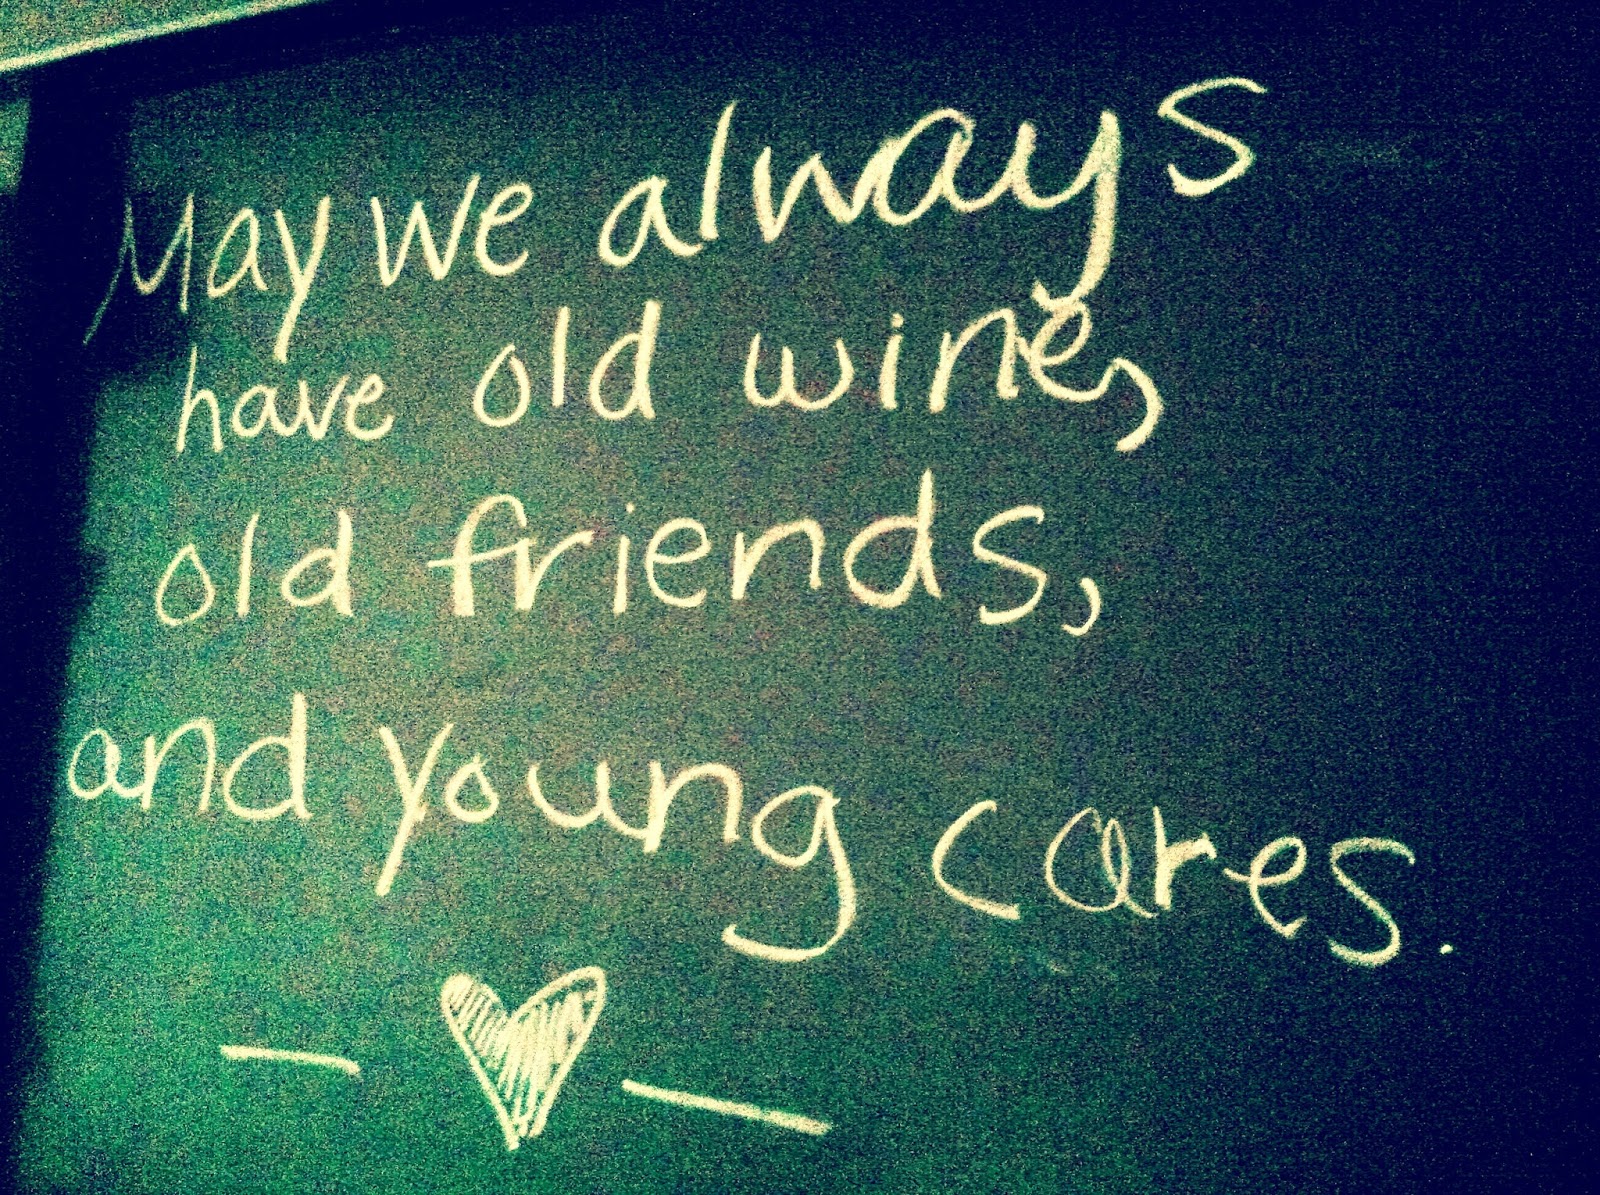 May we always
have old wine,
old friends,
and young cares.